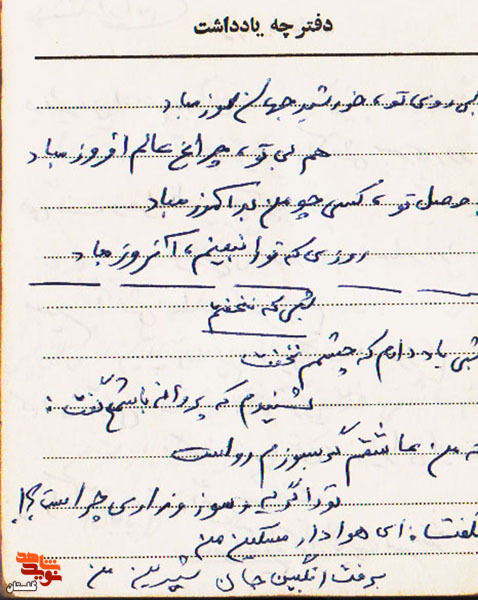 دفترچه یادداشت
بی روی تو، خورشید جهان سوز مباد
هم بی تو، چراغ عالم افروز مباد
وصل تو، کسی چو من بد آموز مباد
روزی که تو را نبینم، آنروز مباد
شبی که نخفتم
شبی یاد دارم که چشمم نخفت
شنیدم که پروانه با شمع گفت :
که من عاشقم گر بسوزم رواست
تو را گریه و سوز و زاری چراست؟!
گفت: ای هوادار مسکین من
برفت انگبین جان شیرین من
شاهد
نوید
گلستان